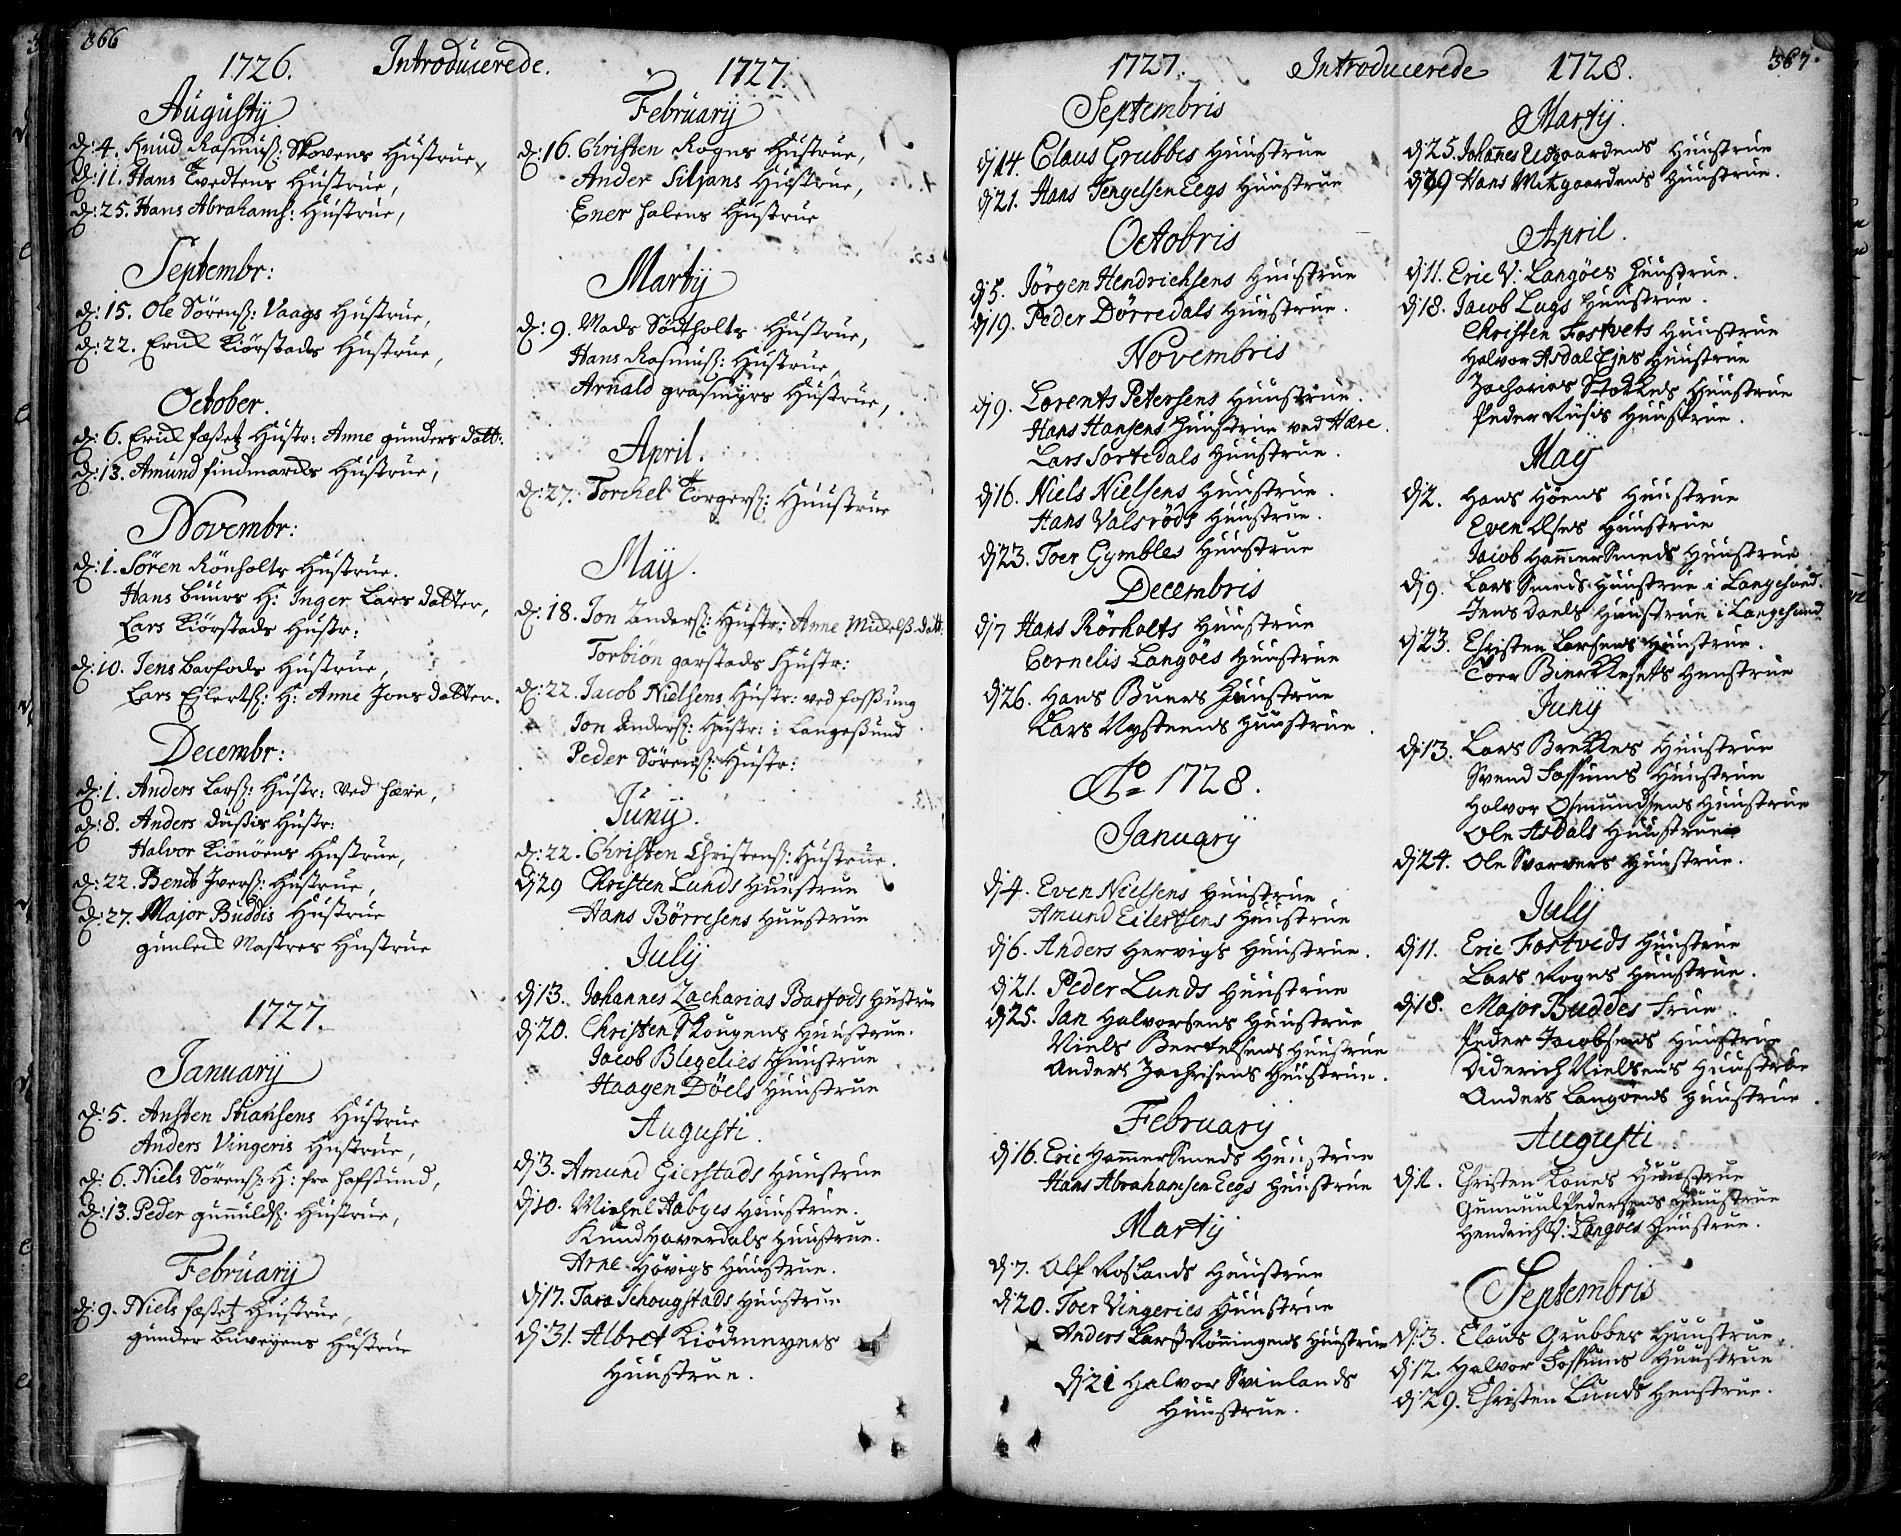 366
1726. Introducerede.
Augustij
d: 4. Knud Rasmus: Skovens Hustrue,
d: 11. Hans Tvedtens Hustrue,
d: 25. Hans Abrahams: Hustrue,
Septembr:
d: 15. Ole Sörens: Vaags Hustrue,
d: 22. Erich Kiörstads Hustrue,
October.
d: 6. Erich fæstes Hustr: Anne gunders datt:
d: 13. Amund findmarchs Hustrue,
Novembr:
d: 1. Sören Rönholts Hustrue.
Hans buurs H: Inger Lars datter,
Lars Kiörstads Hustr:
d: 10. Jens barfods Hustrue,
Lars Eilerts: H: Anne Jons datter.
Decembr:
d: 1. Anders Lars: Hustr: ved hære,
d: 8. Anders dussis Hustr:
Halvor Kiönöens Hustrue,
d: 22. Bendt Ivers: Hustrue,
d: 27. Major Buddis Hustrue
gunleich Mastres Hustrue
1727.
Januarij
d: 5. Ansten Stiansens Hustrue
Anders Vingeris Hustrue,
d: 6. Niels Sörens: H: fra hafsund,
d: 13. Peder gunnulds: Hustrue,
Februarij
d: 9. Niels fæstes Hustrue,
gunder buvegens Hustrue
1727.
Februarij
d: 16. Christen Rognes Hustrue,
Ander Siljans Hustrue,
Ener halens Hustrue
Martij
d: 9. Mads Södtholts Hustrue,
Hans Rasmus: Hustrue,
Arnald grasmyrs Hustrue,
April.
d: 27. Torchel Torgers: Huustrue
Maij.
d: 18. Jon Anders: Hustr: Anne Mickelsdatt:
Torbiön garstads Hustr:
d: 22. Jacob Nielsens Hustr: ved fossung
Jon Anders: Hustr: i Langesund
Peder Sörens: Hustr:
Junij.
d: 22. Christen Christens: Hustrue.
dj 29 Christen Lunds Huustrue
Hans Börresens Huustrue
Julij
dj 13. Johannes Zacharias Barfods Hustrue
dj 20. Christen Skougens Huustrue.
Jacob Blegelies Huustrue
Haagen Döels Huustrue
Augusti.
dj 3. Amund Gierstads Huustrue
dj 10. Michel Aabyes Huustrue.
Knud Haverdals Huustrue.
Arne Hövigs Huustrue.
dj 17. Tara Schougstads Huustrue
dj 31. Albret Kiödmeyers
Huustrue.
1727. Introducerede 1728.
367.
Septembris
dj 14. Claus Grubbes Huustrue
dj 21. Hans Tengelsen Eegs Huustrue
Octobris
dj 5. Jörgen Hendrichsens Huustrue
dj 19. Peder Dörredals Huustrue.
Novembris
dj 9. Lorents Petersens Huustrue.
Hans Hansens Huustrue ved Hære.
Lars Sortedals Huustrue.
dj 16. Niels Nielsens Huustrue.
Hans Valsröds Huustrue.
dj 23. Toer Gymbles Huustrue
Decembris
dj 7 Hans Rörholts Huustrue
Cornelis Langöes Huustrue
dj 26. Hans Buers Huustrue
Lars Nysteens Huustrue.
Ao 1728.
Januarij
dj 4. Even Nielsens Huustrue
Amund Eilertsens Huustrue
dj 6. Anders Hervigs Huustrue.
dj 21. Peder Lunds Huustrue
dj 25. Jan Halvorsens Huustrue
Niels Bertelsens Huustrue
Anders Zachrisens Huustrue.
Februarij
dj 16. Eric Hammersmeds Huustrue
Hans Abrahamsen Eegs Huustrue
Martij
dj 7. Alf Roslands Huustrue
dj 20. Toer Vingeries Huustrue
Anders Lars Rönningens Huustrue
dj 21 Halvor Svinlands
Huustrue.
Martij.
dj 25. Johannes Udgaardens Huustrue
dj 29 Hans Mitgaardens Huustrue.
April.
dj 11. Eric V: Langöes Huustrue.
dj 18. Jacob Lugs Huustrue.
Christen Fostvets Huustrue
Halvor Asdal Ejes Huustrue
Zacharias Stokkes Huustrue
Peder Ruses Huustrue.
Maij
dj 2. Hans Höens Huustrue
Even Elses Huustrue
Jacob Hammersmeds Huustrue
dj 9. Lars Smeds Huustrue i Langesund.
Jens Daels Huustrue i Langesund
dj 23. Christen Larsens Huustrue.
Toer Bierkesets Huustrue
Junij
dj 13. Lars Brekkes Huustrue
Svend Fossums Huustrue
Halvor Osmundsens Huustrue
Ole Asdals Huustrue
dj 24. Ole Svarvers Huustrue.
Julij
dj 11. Eric Fostveds Huustrue
Lars Rognes Huustrue.
dj 18. Major Buddes Frue.
Peder Jacobsens Huustrue
Diderich Nielsens Huustrue
Anders Langöens Huustrue.
Augusti
dj 1. Christen Lones Huustrue
Gunnuul Pedersens Huustrue
Hendrich V: Langöes Huustrue.
Septembris
dj 3. Claus Grubbes Huustrue.
dj 12. Halvor Fossums Huustrue
dj 29. Christen Lunds Huustrue.